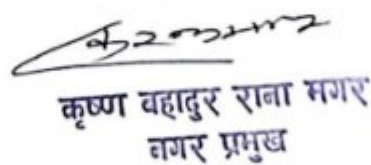 कृष्ण वहादुर राना मगर
नगर प्रमुख